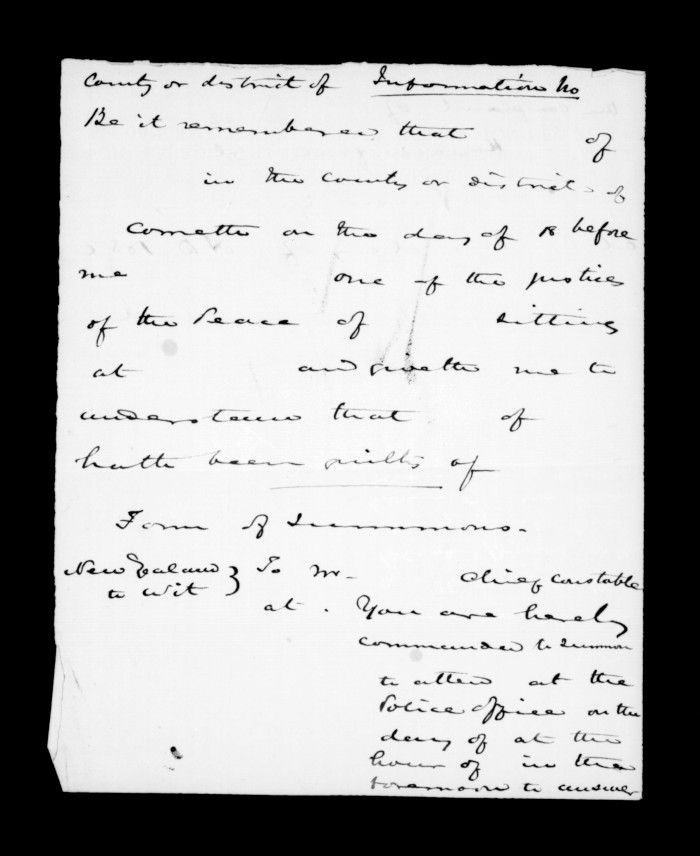 County or district of Information No
Be it remembered that of
in the county or district of
cometh on the day of 18 before
me one of the justices
of the Peace of sitting
at and giveth me to
understand that of
hath been guilty of
Form of Summons.
New Zealand } To Mr. Chief Constable
to wit
at. You are hereby
commanded to summon
to attend at the
Police Office on the
day of at the
hour of in the
forenoon to answer